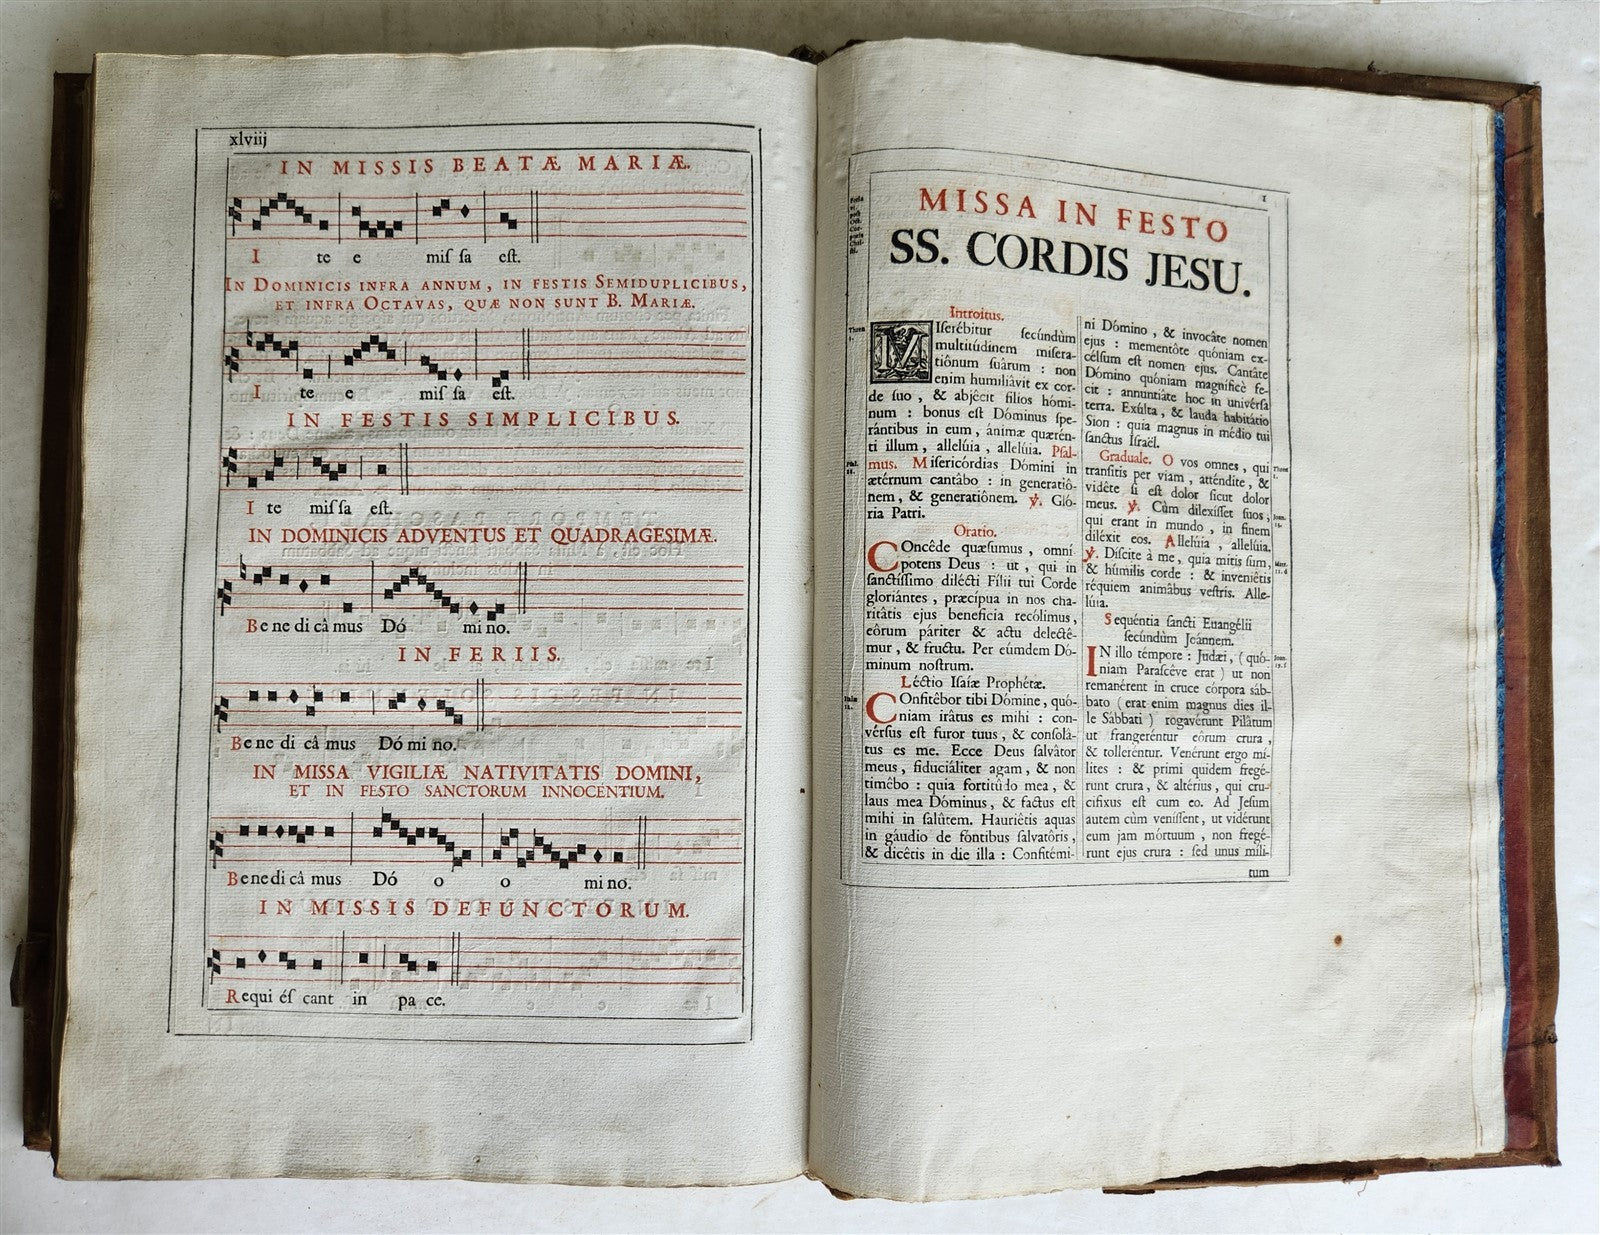 xlviij
IN MISSIS BEATÆ MARIÆ.
I te e miſ ſa eſt.
IN DOMINICIS INFRA ANNUM, IN FESTIS SEMIDUPLICIBUS,
ET INFRA OCTAVAS, QUÆ NON SUNT B. MARIÆ.
I te e miſ ſa eſt.
IN FESTIS SIMPLICIBUS.
I te miſ ſa eſt.
IN DOMINICIS ADVENTUS ET QUADRAGESIMÆ.
Be ne di câ mus Dó mi no.
IN FERIIS.
Be ne di câ mus Dó mi no.
IN MISSA VIGILIÆ NATIVITATIS DOMINI,
ET IN FESTO SANCTORUM INNOCENTIUM.
Benedi câ mus Dó o o mi no.
IN MISSIS DEFUNCTORUM.
Requi éſ cant in pa ce.
1
MISSA IN FESTO
SS. CORDIS JESU.
Introitus.
MIſerébitur ſecúndùm
multitúdinem miſera-
tiônum ſuârum : non
enim humiliâvit ex cor-
de ſuo , & abjécit fílios hómi-
num : bonus eſt Dóminus ſpe-
rántibus in eum , ánimæ quærén-
ti illum , allelúia , allelúia. Pſal-
mus. Miſericórdias Dómini in
ætérnum cantâbo : in generatiô-
nem , & generatiônem. ℣. Gló-
ria Patri.
Oratio.
COncéde quæſumus , omní
potens Deus : ut , qui in
ſanctíſſimo dilécti Fílii tui Corde
gloriántes , præcípua in nos cha-
ritâtis ejus beneficia recólimus,
eôrum páriter & actu delectê-
mur , & fructu. Per eúmdem Dó-
minum noſtrum.
Léctio Iſaíæ Prophétæ.
COnfitêbor tibi Dómine , quó-
niam irâtus es mihi : con-
vérſus eſt furor tuus , & conſolâ-
tus es me. Ecce Deus ſalvâtor
meus , fiduciáliter agam , & non
timêbo : quia fortitûdo mea , &
laus mea Dóminus , & factus eſt
mihi in ſalûtem. Hauriêtis aquas
in gáudio de fóntibus ſalvatôris ,
& dicêtis in die illa : Confitémi-
ni Dómino , & invocâte nomen
ejus : mementôte quóniam ex-
célſum eſt nomen ejus. Cantâte
Dómino quóniam magnificè fe-
cit : annuntiâte hoc in univérſa
terra. Exſúlta , & lauda habitátio
Sion : quia magnus in médio tui
ſanctus Iſraël.
Graduale. O vos omnes , qui
tranſitis per viam , atténdite , &
vidête ſi eſt dolor ſicut dolor
meus. ℣. Cùm dilexíſſet ſuos ,
qui erant in mundo , in finem
diléxit eos. Allelúia , allelúia.
℣. Díſcite à me , quia mitis ſum,
& húmilis corde : & inveniêtis
réquiem animâbus veſtris. Alle-
lúia.
Sequéntia ſancti Euangélii
ſecúndùm Joánnem.
IN illo témpore : Judæi , ( quó-
niam Paraſcêve erat ) ut non
remanérent in cruce córpora ſáb-
bato ( erat enim magnus dies il-
le Sábbati ) rogavérunt Pilâtum
ut frangeréntur eôrum crura ,
& tolleréntur. Venérunt ergo mí-
lites : & primi quidem fregé-
runt crura , & altérius , qui cru-
cifixus eſt cum eo. Ad Jeſum
autem cùm veníſſent, ut vidérunt
eum jam mórtuum , non fregé-
runt ejus crura : ſed unus míli-
tum